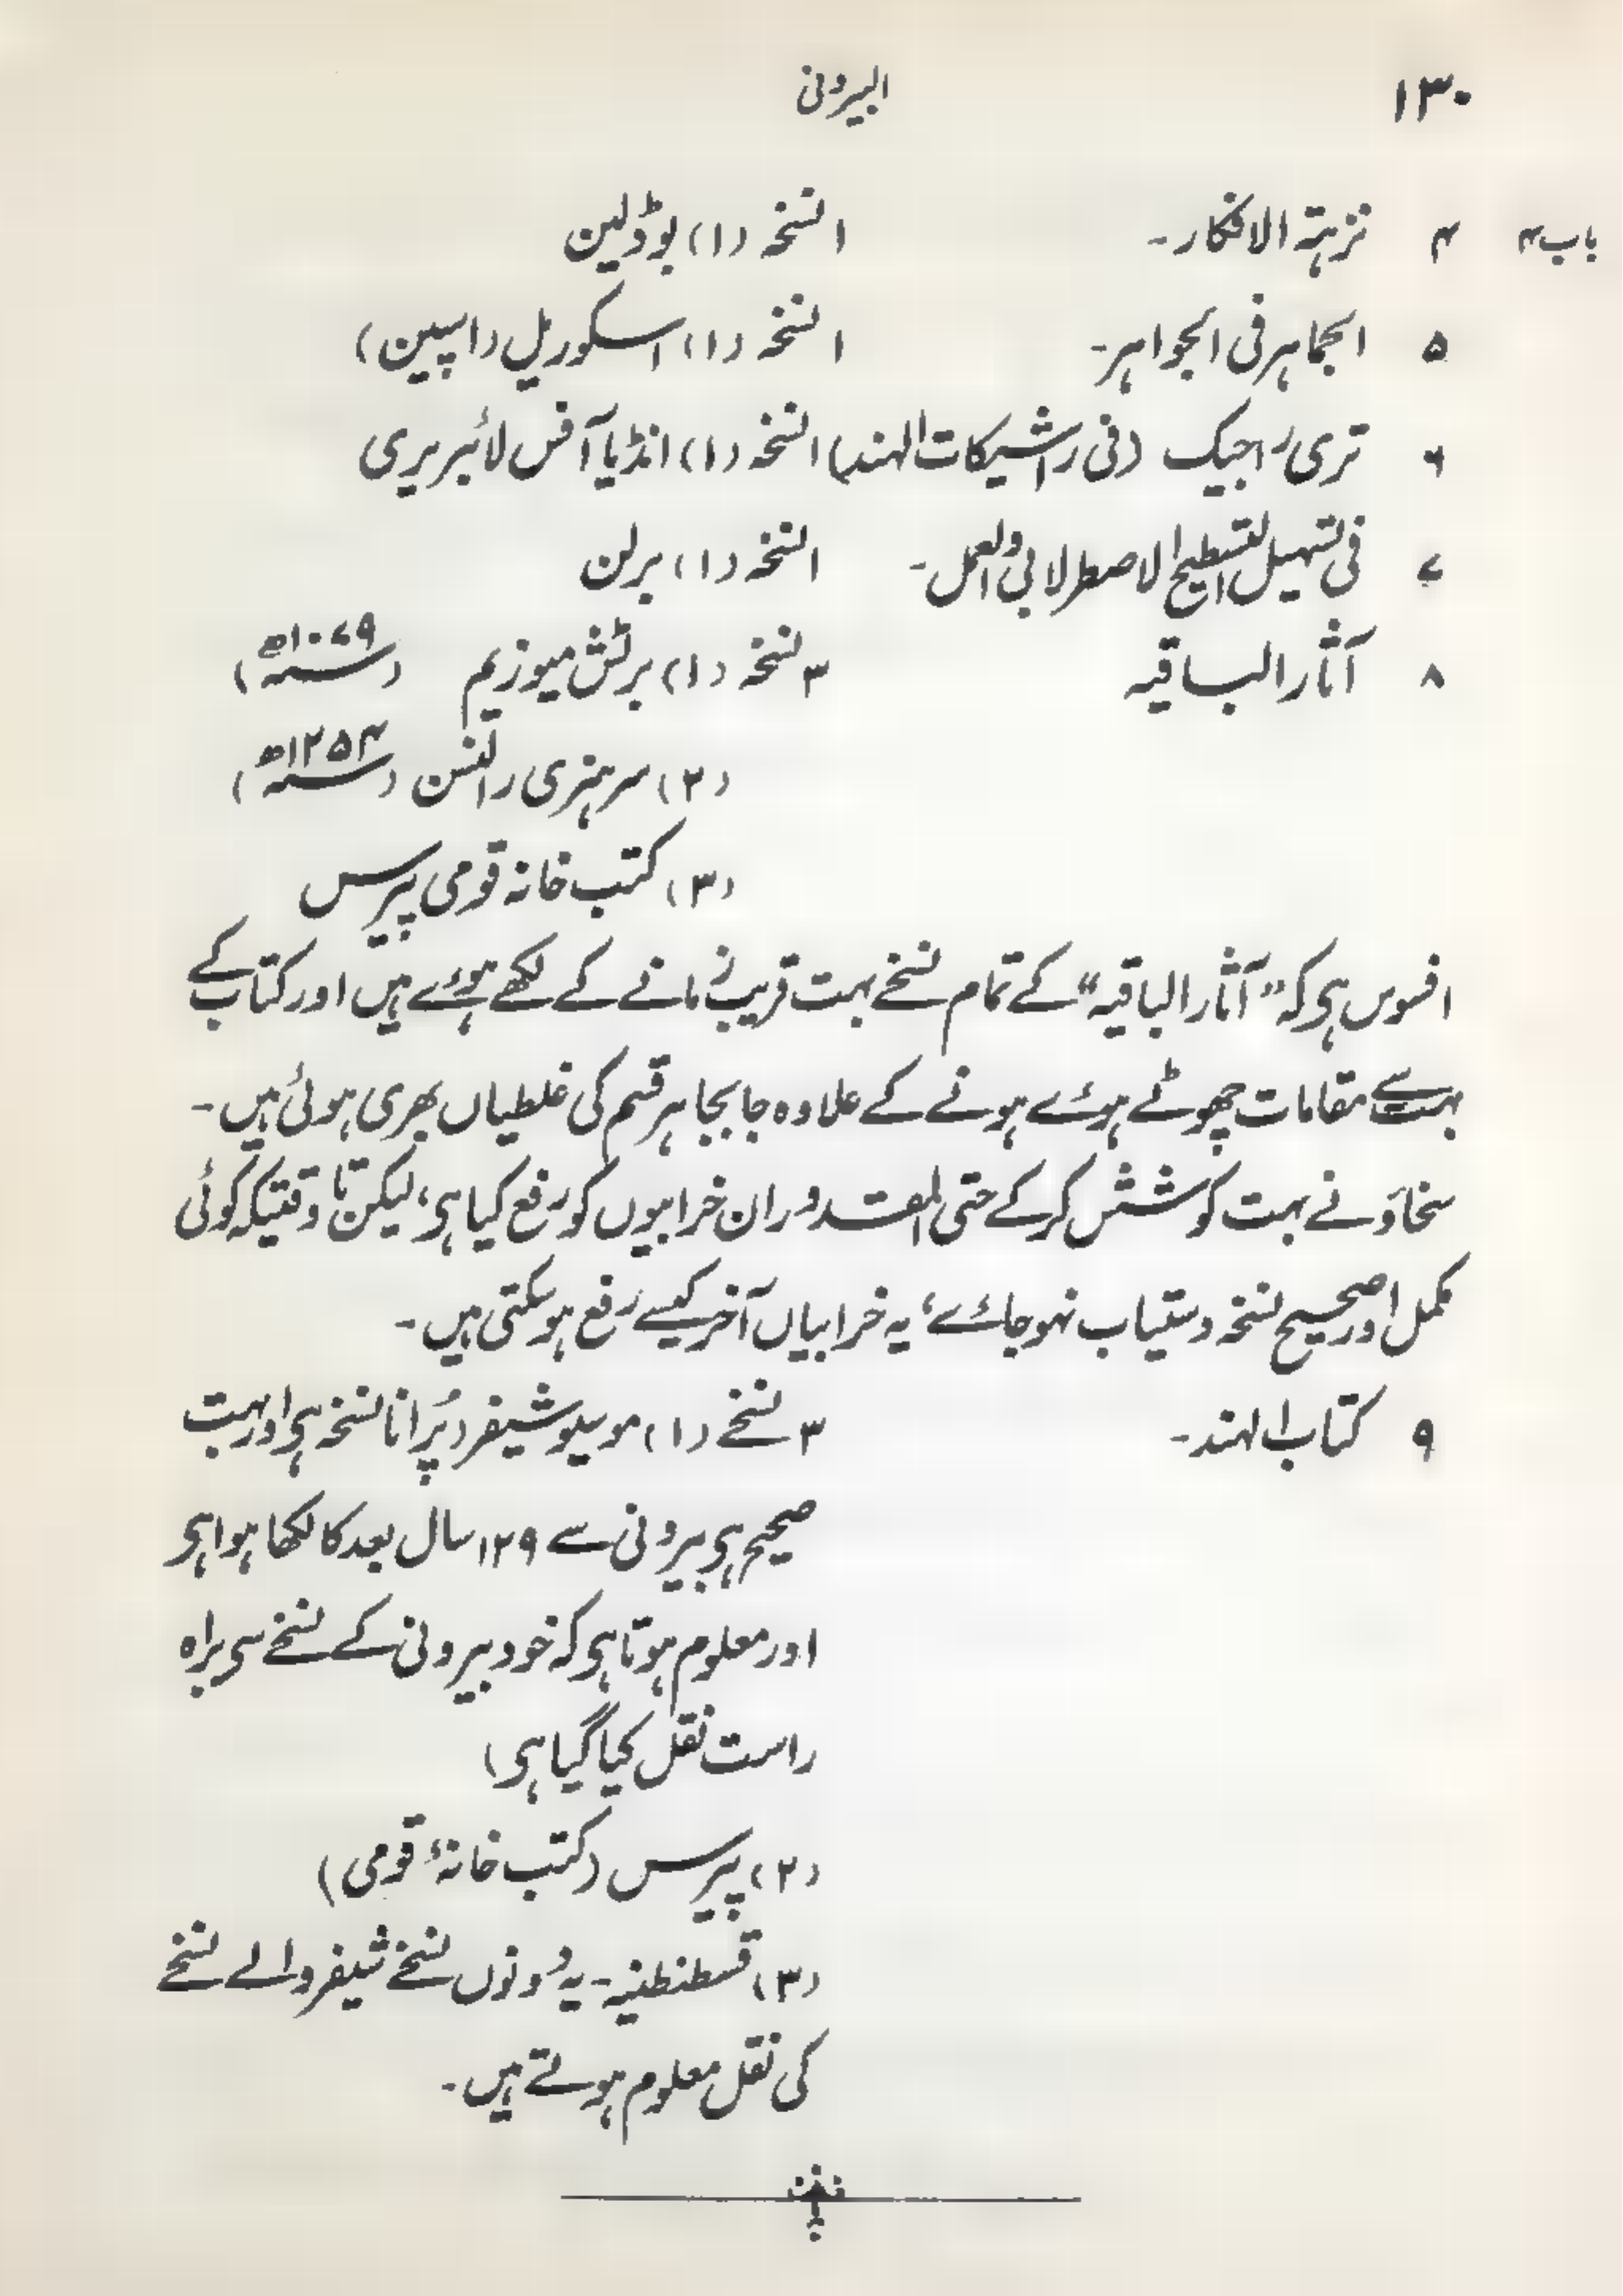 ۱۳۰ البیرونی
باب۴ ۴ نزہتہ الافکار۔ ا نسخہ (۱) بوڈلین
۵ الجماہر فی الجواہر۔ ا نسخہ (۱) اسکوریل (اسپین)
۶ تری راجیک (فی راشیکات الہند) ا نسخہ (۱) انڈیا آفس لائبریری
۷ فی تسہیل لتسطیح الاصطرلابی والعمل۔ ا نسخہ (۱) برلن
۸ آثار الباقیہ ۳ نسخہ (۱) برٹش میوزیم (سنہ ۱۰۷۹ھ)
(۲) سر ہنری رالنسن (سنہ ۱۲۵۴ھ)
(۳) کتب خانہ قومی پیرس
افسوس ہی کہ "آثار الباقیہ" کے تمام نسخے بہت قریب زمانے کے لکھے ہوئے ہیں اور کتاب کے
بہت سے مقامات چھوٹے ہوئے ہونے کے علاوہ جا بجا ہر قسم کی غلطیاں بھری ہوئی ہیں۔
سخاؤ نے بہت کوشش کرکے حتی المقدور ان خرابیوں کو رفع کیا ہی، لیکن تا وقتیکہ کوئی
مکمل اور صحیح نسخہ دستیاب نہو جائے، یہ خرابیاں آخر کیسے رفع ہو سکتی ہیں۔
۹ کتاب الہند۔ ۳ نسخے (۱) موسیو شیفر (پُرانا نسخہ ہی اور بہت
صحیح ہی بیرونی سے ۱۲۹ سال بعد کا لکھا ہوا ہی
اور معلوم ہوتا ہی کہ خود بیرونی کے نسخے سی براہ
راست نقل کیا گیا ہی)
(۲) پیرس (کتب خانۂ قومی)
(۳) قسطنطنیہ۔ یہ دونوں نسخے شیفر والے نسخے
کی نقل معلوم ہوتے ہیں۔